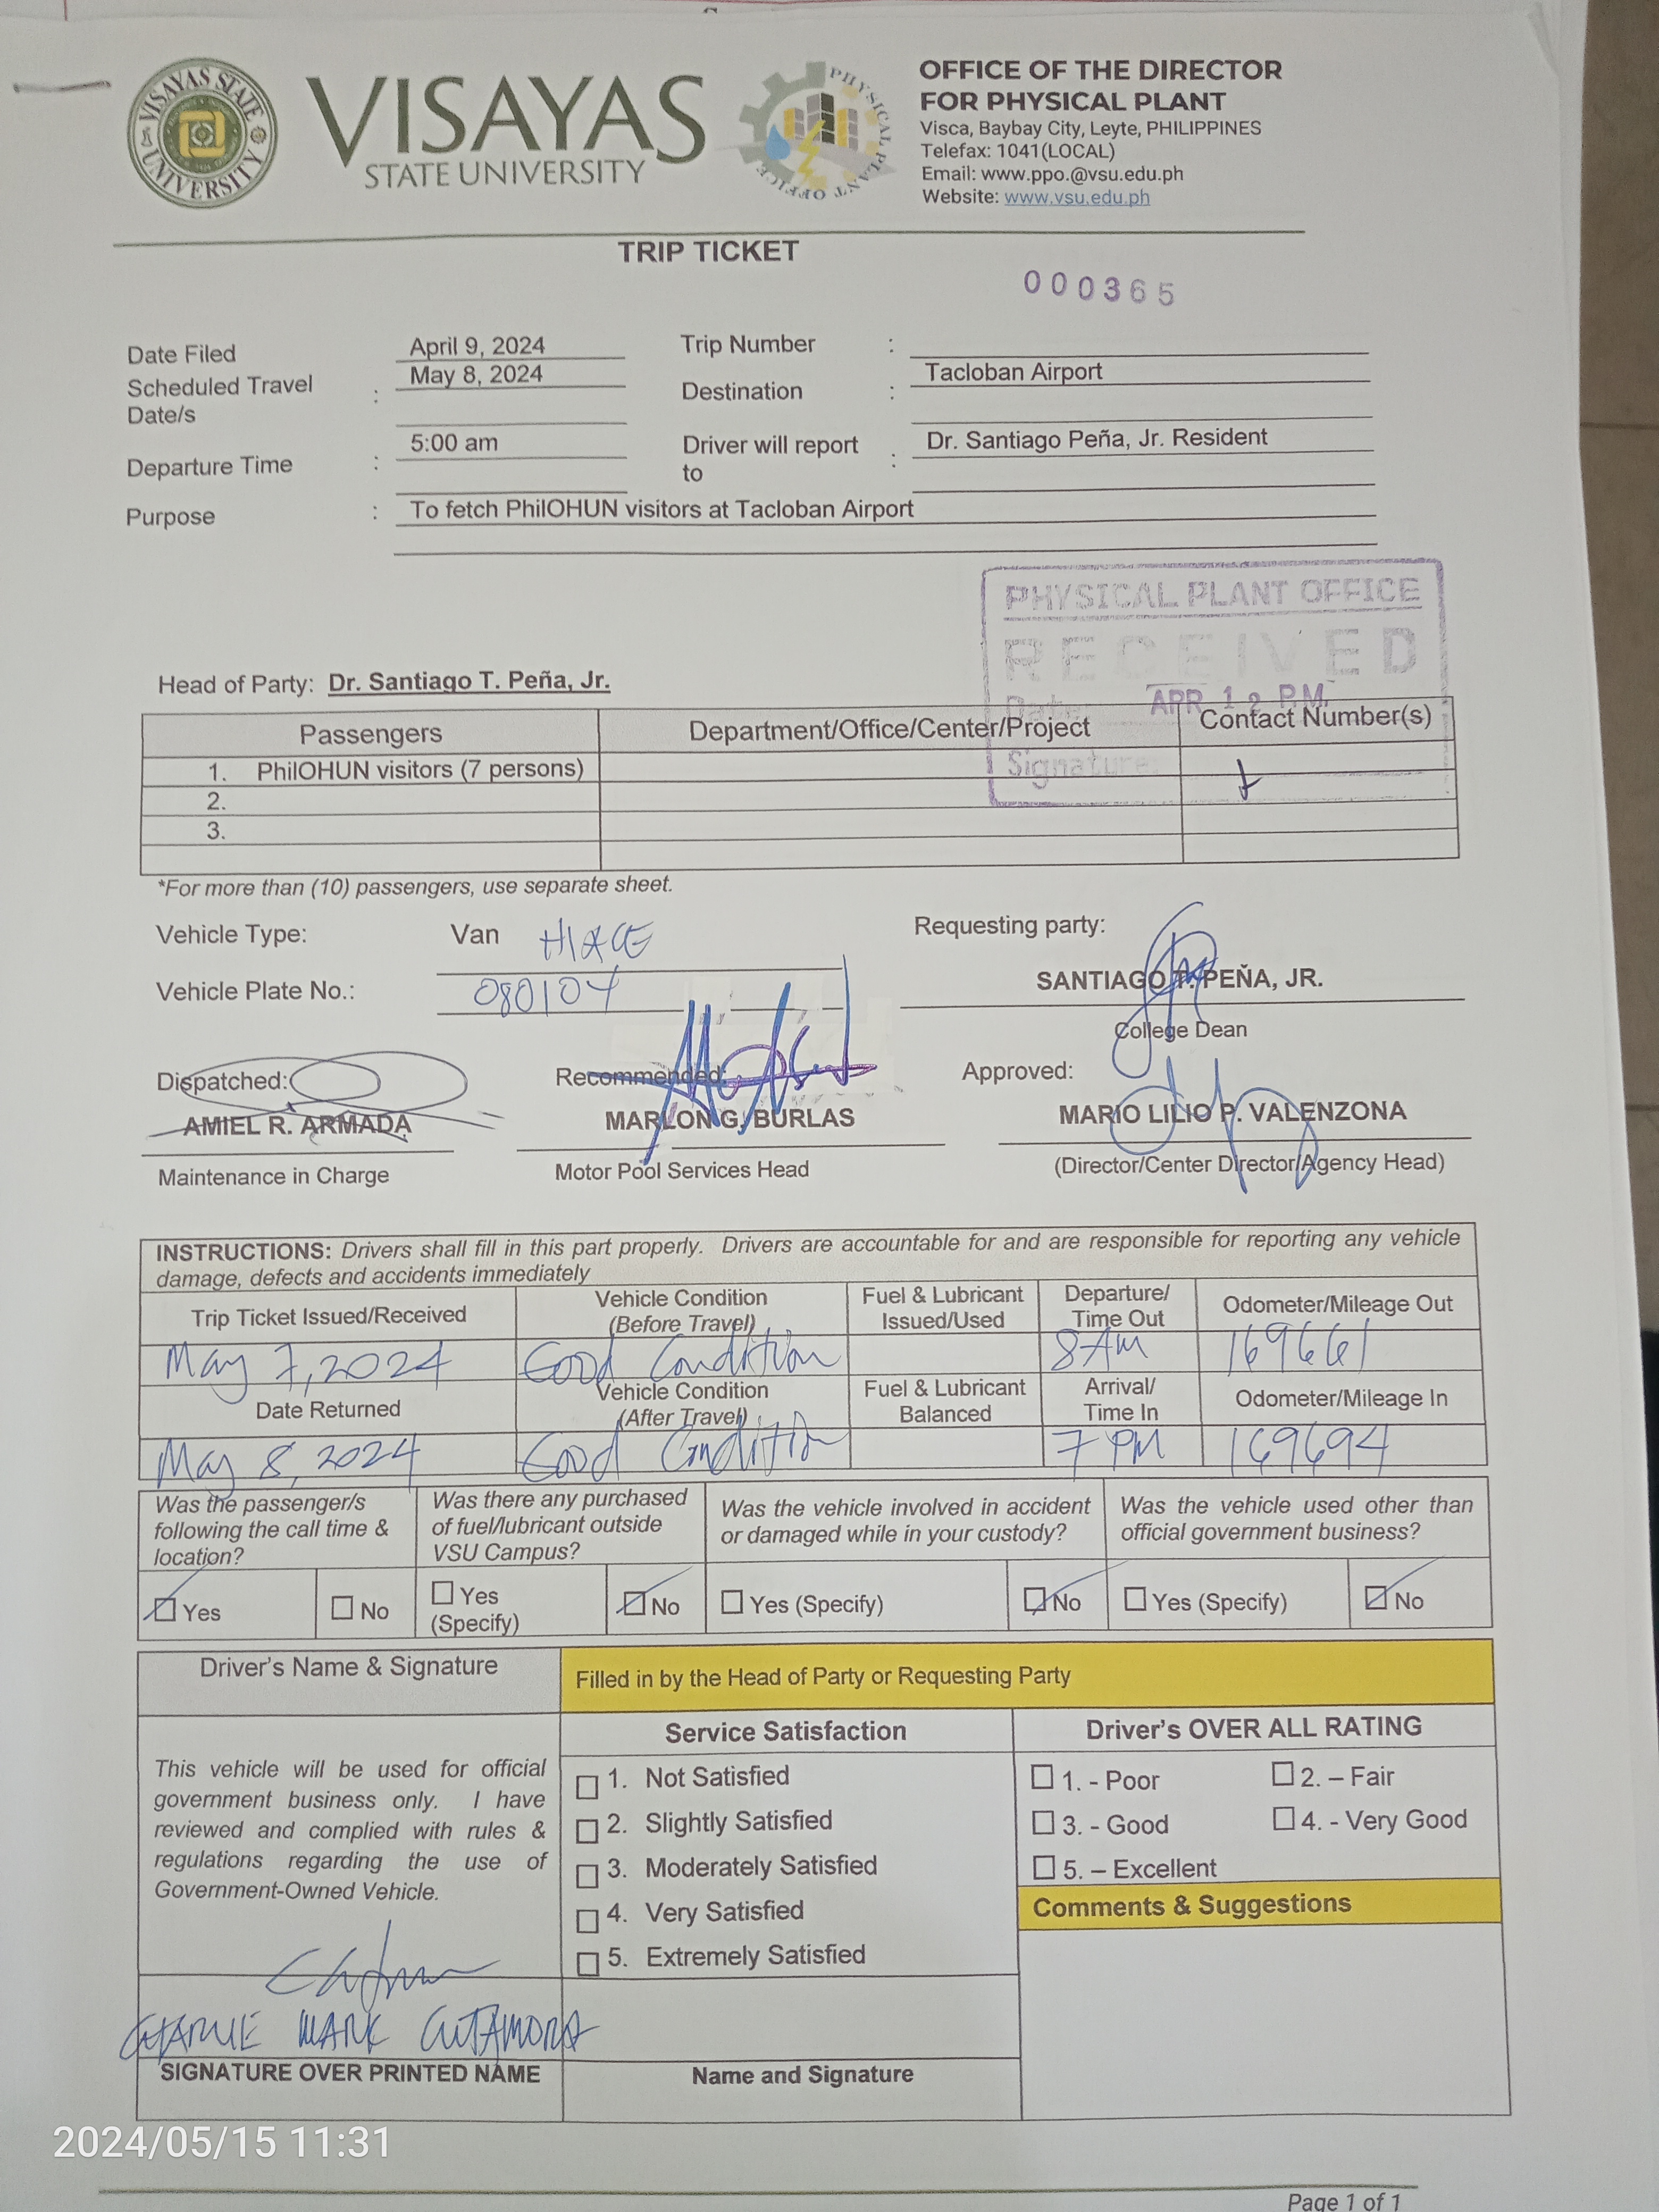 VISAYAS STATE UNIVERSITY
VISAYAS
STATE UNIVERSITY
PHYSICAL PLANT OFFICE
OFFICE OF THE DIRECTOR
FOR PHYSICAL PLANT
Visca, Baybay City, Leyte, PHILIPPINES
Telefax: 1041(LOCAL)
Email: www.ppo.@vsu.edu.ph
Website: www.vsu.edu.ph
TRIP TICKET
000365
Date Filed April 9, 2024 Trip Number :
Scheduled Travel Date/s : May 8, 2024 Destination : Tacloban Airport
Departure Time : 5:00 am Driver will report to : Dr. Santiago Peña, Jr. Resident
Purpose : To fetch PhilOHUN visitors at Tacloban Airport
PHYSICAL PLANT OFFICE
RECEIVED
Date: APR 12 P.M.
Signature:
Head of Party: Dr. Santiago T. Peña, Jr.
Passengers Department/Office/Center/Project Contact Number(s)
1. PhilOHUN visitors (7 persons)
2.
3.
*For more than (10) passengers, use separate sheet.
Vehicle Type: Van HIACE
Requesting party:
Vehicle Plate No.: 080104
SANTIAGO T. PEÑA, JR.
College Dean
Dispatched: Recommended: Approved:
AMIEL R. ARMADA MARLON G. BURLAS MARIO LILIO P. VALENZONA
Maintenance in Charge Motor Pool Services Head (Director/Center Director/Agency Head)
INSTRUCTIONS: Drivers shall fill in this part properly. Drivers are accountable for and are responsible for reporting any vehicle
damage, defects and accidents immediately
Trip Ticket Issued/Received Vehicle Condition (Before Travel) Fuel & Lubricant Issued/Used Departure/ Time Out Odometer/Mileage Out
May 7, 2024 Good Condition 8 AM 169661
Date Returned Vehicle Condition (After Travel) Fuel & Lubricant Balanced Arrival/ Time In Odometer/Mileage In
May 8, 2024 Good Condition 7 PM 169694
Was the passenger/s following the call time & location? Was there any purchased of fuel/lubricant outside VSU Campus? Was the vehicle involved in accident or damaged while in your custody? Was the vehicle used other than official government business?
Yes No Yes (Specify) No Yes (Specify) No Yes (Specify) No
Driver's Name & Signature Filled in by the Head of Party or Requesting Party
Service Satisfaction Driver's OVER ALL RATING
This vehicle will be used for official
government business only. I have
reviewed and complied with rules &
regulations regarding the use of
Government-Owned Vehicle.
1. Not Satisfied
2. Slightly Satisfied
3. Moderately Satisfied
4. Very Satisfied
5. Extremely Satisfied
1. - Poor 2. – Fair
3. - Good 4. - Very Good
5. – Excellent
Comments & Suggestions
CHARLIE MARK CUTAMORA
SIGNATURE OVER PRINTED NAME Name and Signature
2024/05/15 11:31
Page 1 of 1